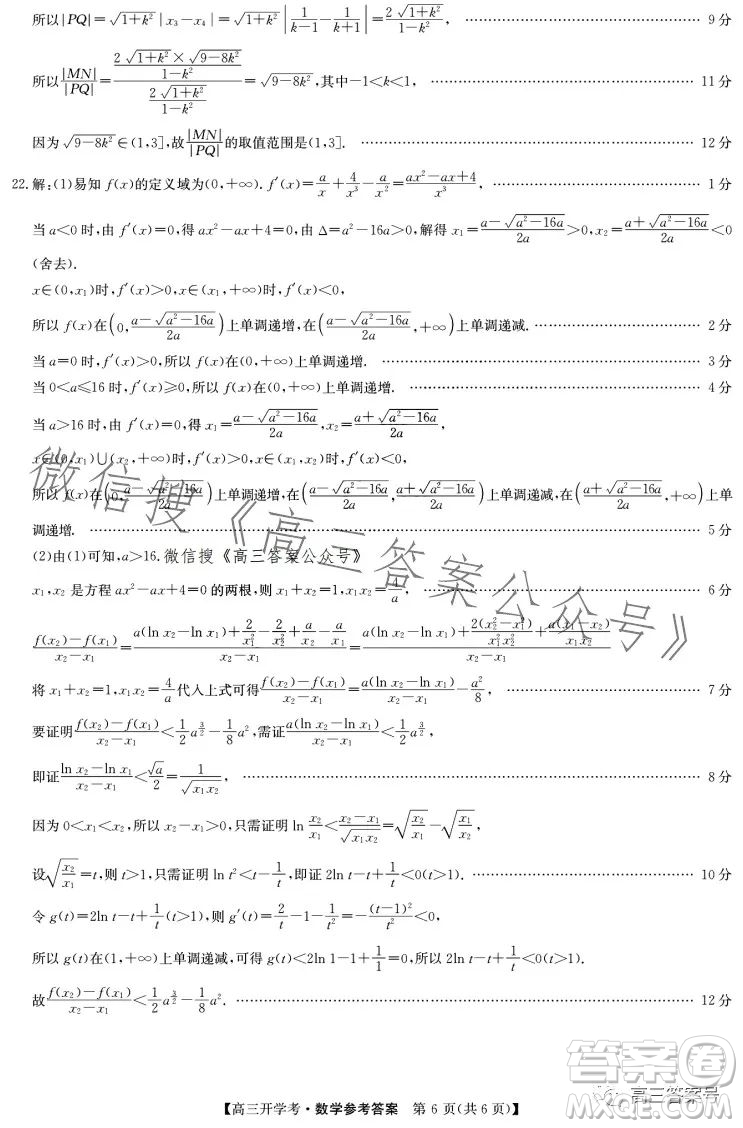 所以|PQ|=√(1+k²)|x₃-x₄|=√(1+k²)|1/(k-1)-1/(k+1)|=2√(1+k²)/(1-k²), …… 9分
所以|MN|/|PQ|=(2√(1+k²)×√(9-8k²)/(1-k²))/(2√(1+k²)/(1-k²))=√(9-8k²),其中-1<k<1, …… 11分
因为√(9-8k²)∈(1,3],故|MN|/|PQ|的取值范围是(1,3]. …… 12分
22.解:(1)易知f(x)的定义域为(0,+∞).f′(x)=a/x+4/x³-a/x²=(ax²-ax+4)/x³, …… 1分
当a<0时,由f′(x)=0,得ax²-ax+4=0,由Δ=a²-16a>0,解得x₁=(a-√(a²-16a))/2a>0,x₂=(a+√(a²-16a))/2a<0
(舍去).
x∈(0,x₁)时,f′(x)>0,x∈(x₁,+∞)时,f′(x)<0,
所以f(x)在(0,(a-√(a²-16a))/2a)上单调递增,在((a-√(a²-16a))/2a,+∞)上单调递减. …… 2分
当a=0时,f′(x)>0,所以f(x)在(0,+∞)上单调递增. …… 3分
当0<a≤16时,f′(x)≥0,所以f(x)在(0,+∞)上单调递增. …… 4分
当a>16时,由f′(x)=0,得x₁=(a-√(a²-16a))/2a,x₂=(a+√(a²-16a))/2a,
x∈(0,x₁)∪(x₂,+∞)时,f′(x)>0,x∈(x₁,x₂)时,f′(x)<0,
所以f(x)在(0,(a-√(a²-16a))/2a)上单调递增,在((a-√(a²-16a))/2a,(a+√(a²-16a))/2a)上单调递减,在((a+√(a²-16a))/2a,+∞)上单调
调递增. …… 5分
(2)由(1)可知,a>16.微信搜《高三答案公众号》
x₁,x₂是方程ax²-ax+4=0的两根,则x₁+x₂=1,x₁x₂=4/a, …… 6分
(f(x₂)-f(x₁))/(x₂-x₁)=(a(ln x₂-ln x₁)+2/x₁²-2/x₂²+a/x₂-a/x₁)/(x₂-x₁)=(a(ln x₂-ln x₁)+2(x₂²-x₁²)/(x₁²x₂²)+a(x₁-x₂)/(x₁x₂))/(x₂-x₁)
将x₁+x₂=1,x₁x₂=4/a代入上式可得(f(x₂)-f(x₁))/(x₂-x₁)=a(ln x₂-ln x₁)/(x₂-x₁)-a²/8, …… 7分
要证明(f(x₂)-f(x₁))/(x₂-x₁)<1/2 a^(3/2)-1/8 a²,需证a(ln x₂-ln x₁)/(x₂-x₁)<1/2 a^(3/2),
即证(ln x₂-ln x₁)/(x₂-x₁)<√a/2=1/√(x₁x₂), …… 8分
因为0<x₁<x₂,所以x₂-x₁>0,只需证明ln x₂/x₁<(x₂-x₁)/√(x₁x₂)=√(x₂/x₁)-√(x₁/x₂),
设√(x₂/x₁)=t,则t>1,只需证明ln t²<t-1/t,即证2ln t-t+1/t<0(t>1). …… 10分
令g(t)=2ln t-t+1/t(t>1),则g′(t)=2/t-1-1/t²=-(t-1)²/t²<0,
所以g(t)在(1,+∞)上单调递减,可得g(t)<2ln 1-1+1/1=0,所以2ln t-t+1/t<0(t>1).
故(f(x₂)-f(x₁))/(x₂-x₁)<1/2 a^(3/2)-1/8 a². …… 12分
【高三开学考·数学参考答案 第6页(共6页)】
微信搜《高三答案公众号》
答案圈
高三答案号
MXQE.COM